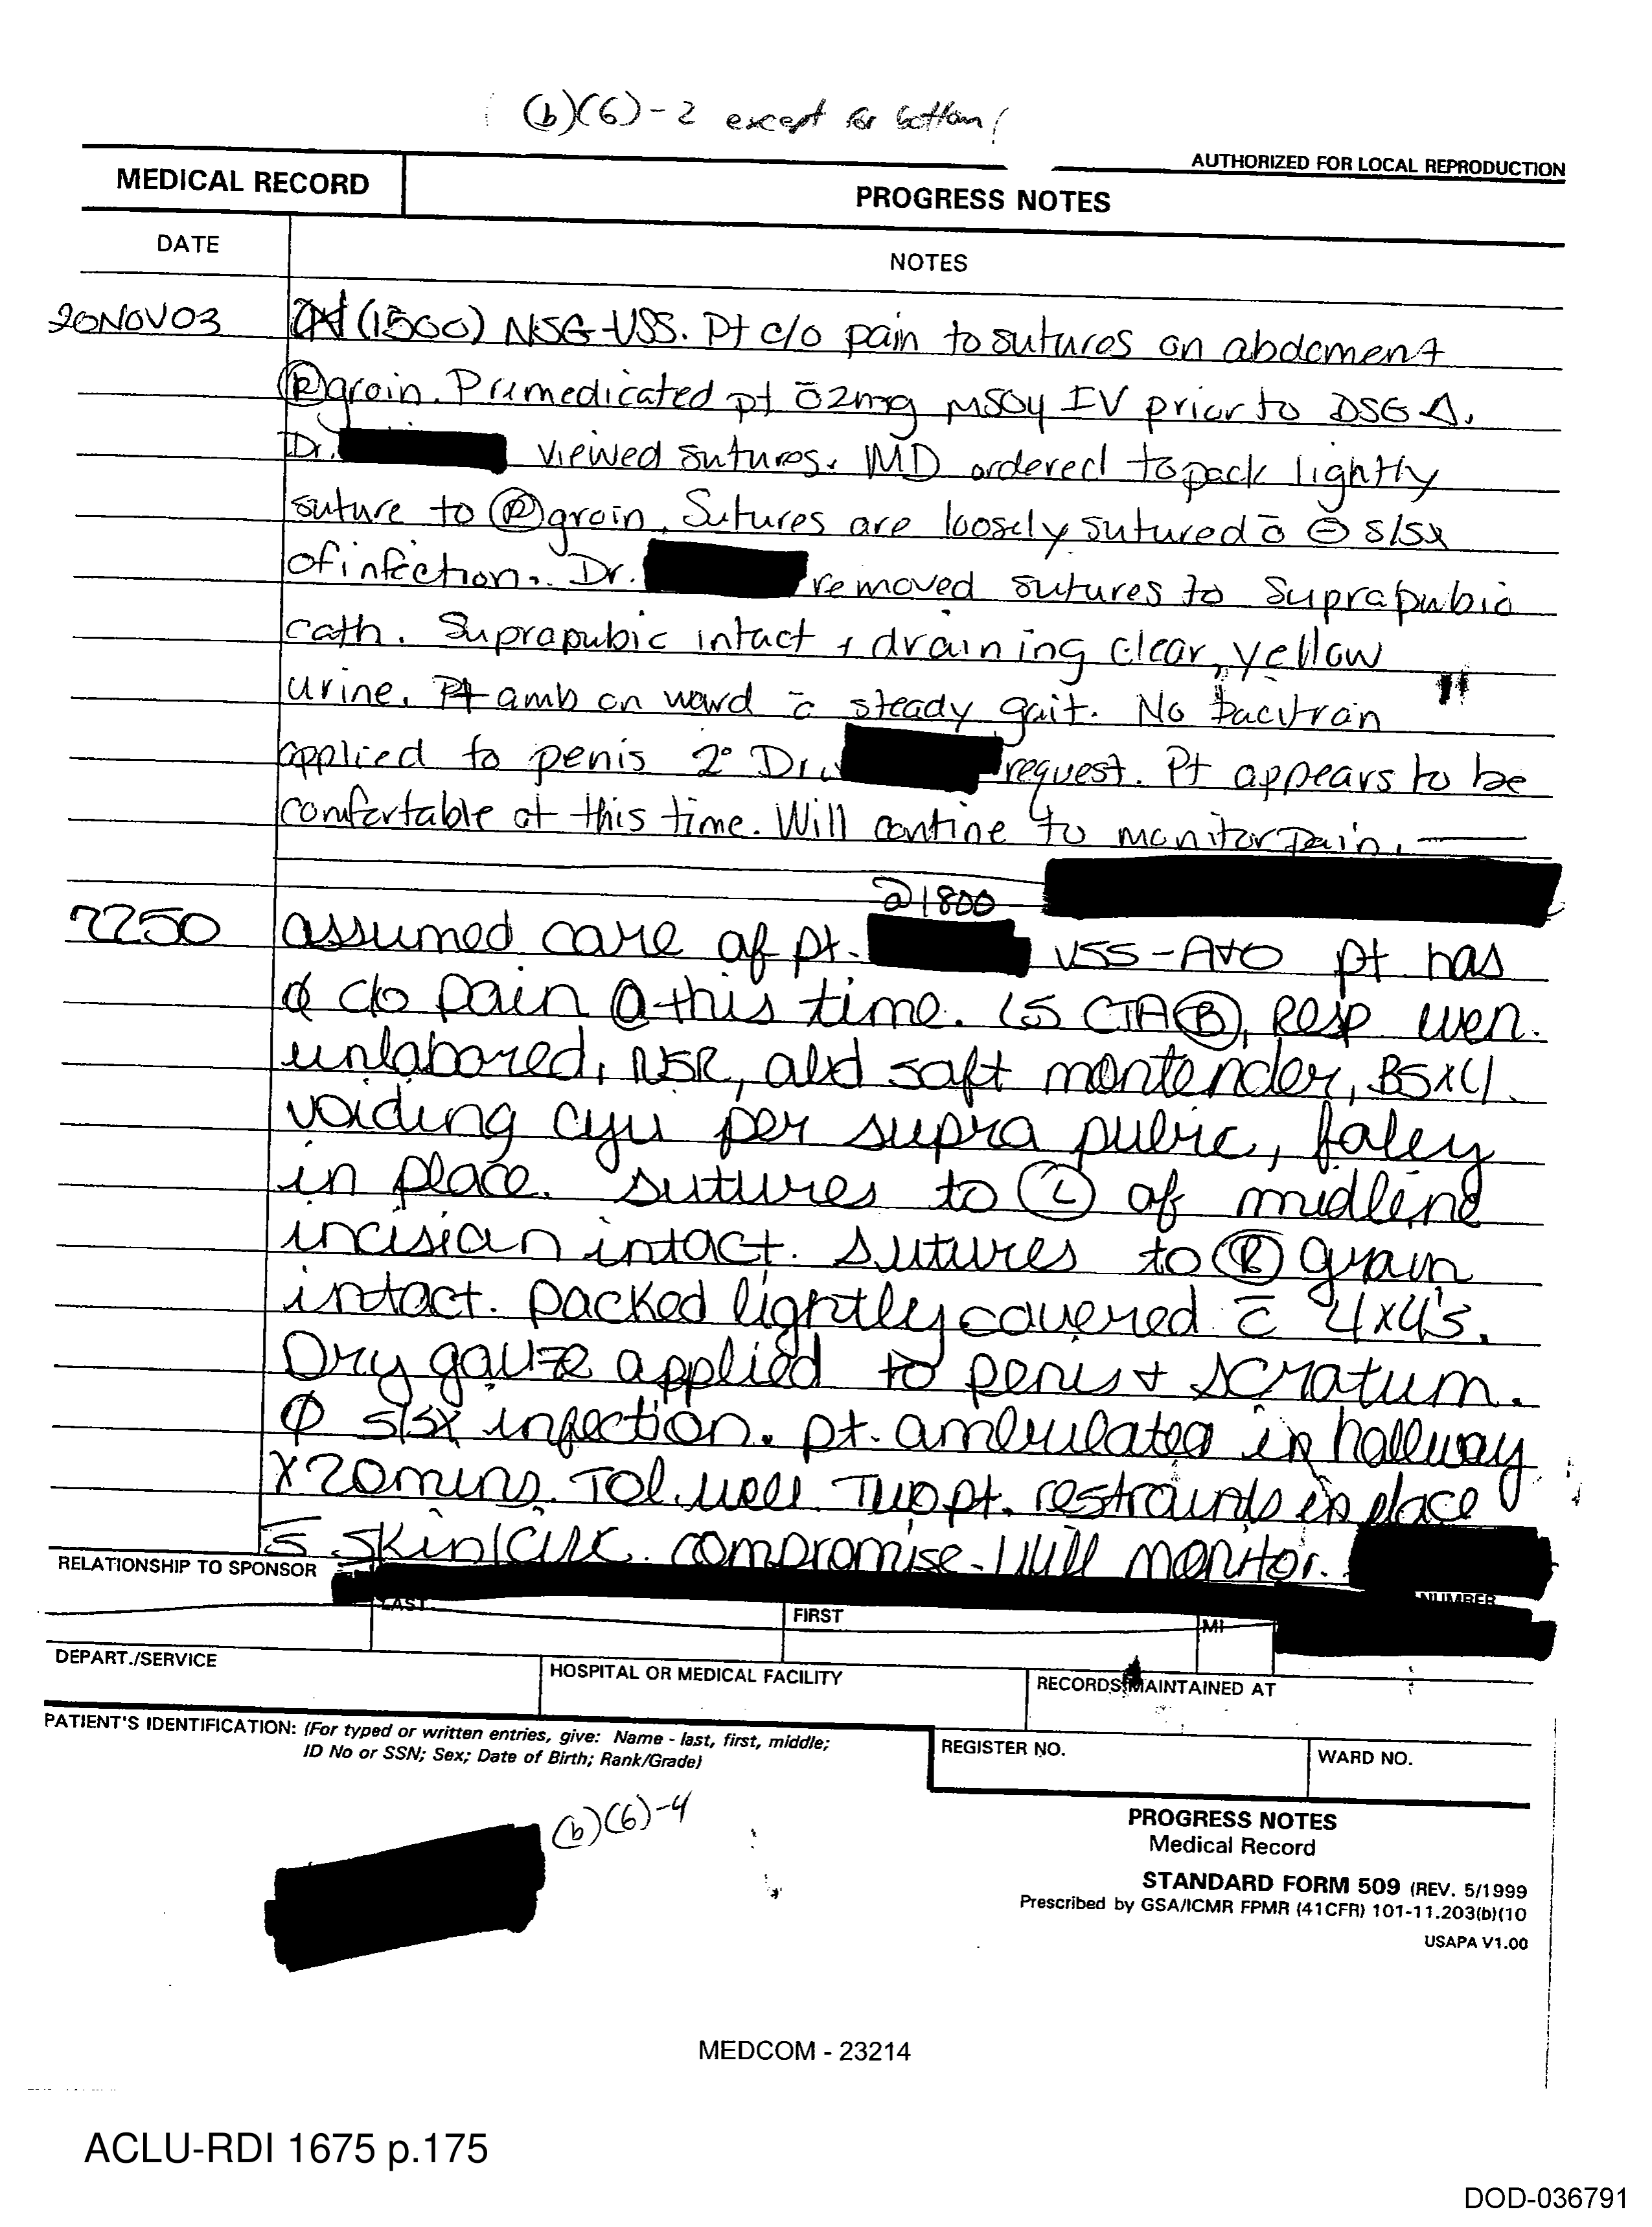 (b)(6)-2 except for bottom
AUTHORIZED FOR LOCAL REPRODUCTION
MEDICAL RECORD
PROGRESS NOTES
DATE
NOTES
20NOV03 (1500) NSG-VSS. Pt c/o pain to sutures on abdomen +
Ⓡ groin. Premedicated pt c̄ 2mg MSO4 IV prior to DSG Δ.
Dr. viewed sutures. MD ordered to pack lightly
suture to Ⓡ groin. Sutures are loosely sutured c̄ ⊖ s/sx
of infection. Dr. removed sutures to Suprapubic
cath. Suprapubic intact + draining clear, yellow
urine. Pt amb on ward c̄ steady gait. No
applied to penis 2° Dr. request. Pt appears to be
comfortable at this time. Will contine to monitor pain.
@1800
2250 assumed care of pt. VSS-A+O pt has
∅ c/o pain @ this time. LS CTA Ⓑ, Resp
unlabored, NSR, abd soft nontender, BSx4.
voiding cyu per supra pubic, foley
in place. sutures to Ⓛ of midline
incision intact. sutures to Ⓡ groin
intact. packed lightly covered c̄ 4x4's.
Dry gauze applied to penis + scrotum.
∅ s/sx infection. pt. ambulated in hallway
x 20mins. Tol. well. Two pt. restraints in place
s̄ skin/circ. compromise. Will monitor.
RELATIONSHIP TO SPONSOR
NUMBER
LAST
FIRST
MI
DEPART./SERVICE
HOSPITAL OR MEDICAL FACILITY
RECORDS MAINTAINED AT
PATIENT'S IDENTIFICATION: (For typed or written entries, give: Name - last, first, middle;
ID No or SSN; Sex; Date of Birth; Rank/Grade)
REGISTER NO.
WARD NO.
(b)(6)-4
PROGRESS NOTES
Medical Record
STANDARD FORM 509 (REV. 5/1999
Prescribed by GSA/ICMR FPMR (41CFR) 101-11.203(b)(10
USAPA V1.00
MEDCOM - 23214
ACLU-RDI 1675 p.175
DOD-036791